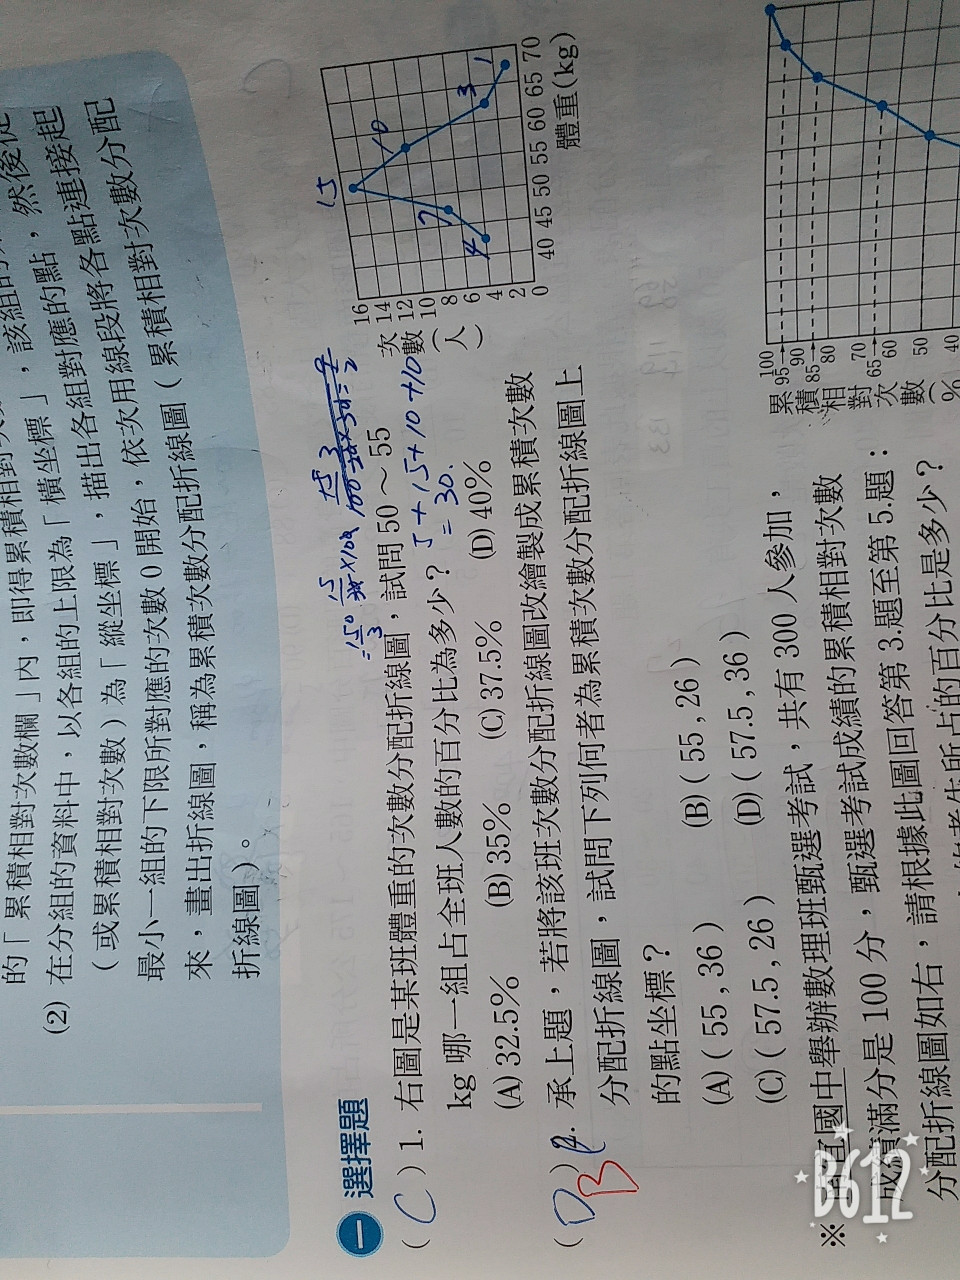 的「累積相對次數欄」內，即得累積相對次
(2) 在分組的資料中，以各組的上限為「橫坐標」，該組的
（或累積相對次數）為「縱坐標」，描出各組對應的點，然後從
最小一組的下限所對應的次數 0 開始，依次用線段將各點連接起
來，畫出折線圖，稱為累積次數分配折線圖（累積相對次數分配
折線圖）。
一 選擇題
( C ) 1. 右圖是某班體重的次數分配折線圖，試問 50～55
kg 哪一組占全班人數的百分比為多少？
(A) 32.5% (B) 35% (C) 37.5% (D) 40%
5+15+10+10
=30
次數（人）
16
14
12
10
8
6
4
2
0
40 45 50 55 60 65 70
體重(kg)
4
7
15
10
3
1
( D B ) . 承上題，若將該班次數分配折線圖改繪製成累積次數
分配折線圖，試問下列何者為累積次數分配折線圖上
的點坐標？
(A) ( 55 , 36 ) (B) ( 55 , 26 )
(C) ( 57.5 , 26 ) (D) ( 57.5 , 36 )
※ 國中舉辦數理班甄選考試，共有 300 人參加，
成績滿分是 100 分，甄選考試成績的累積相對次數
分配折線圖如右，請根據此圖回答第 3.題至第 5.題：
所占的百分比是多少？
累積相對次數（%
100
95
90
85
80
70
65
60
50
40
B612